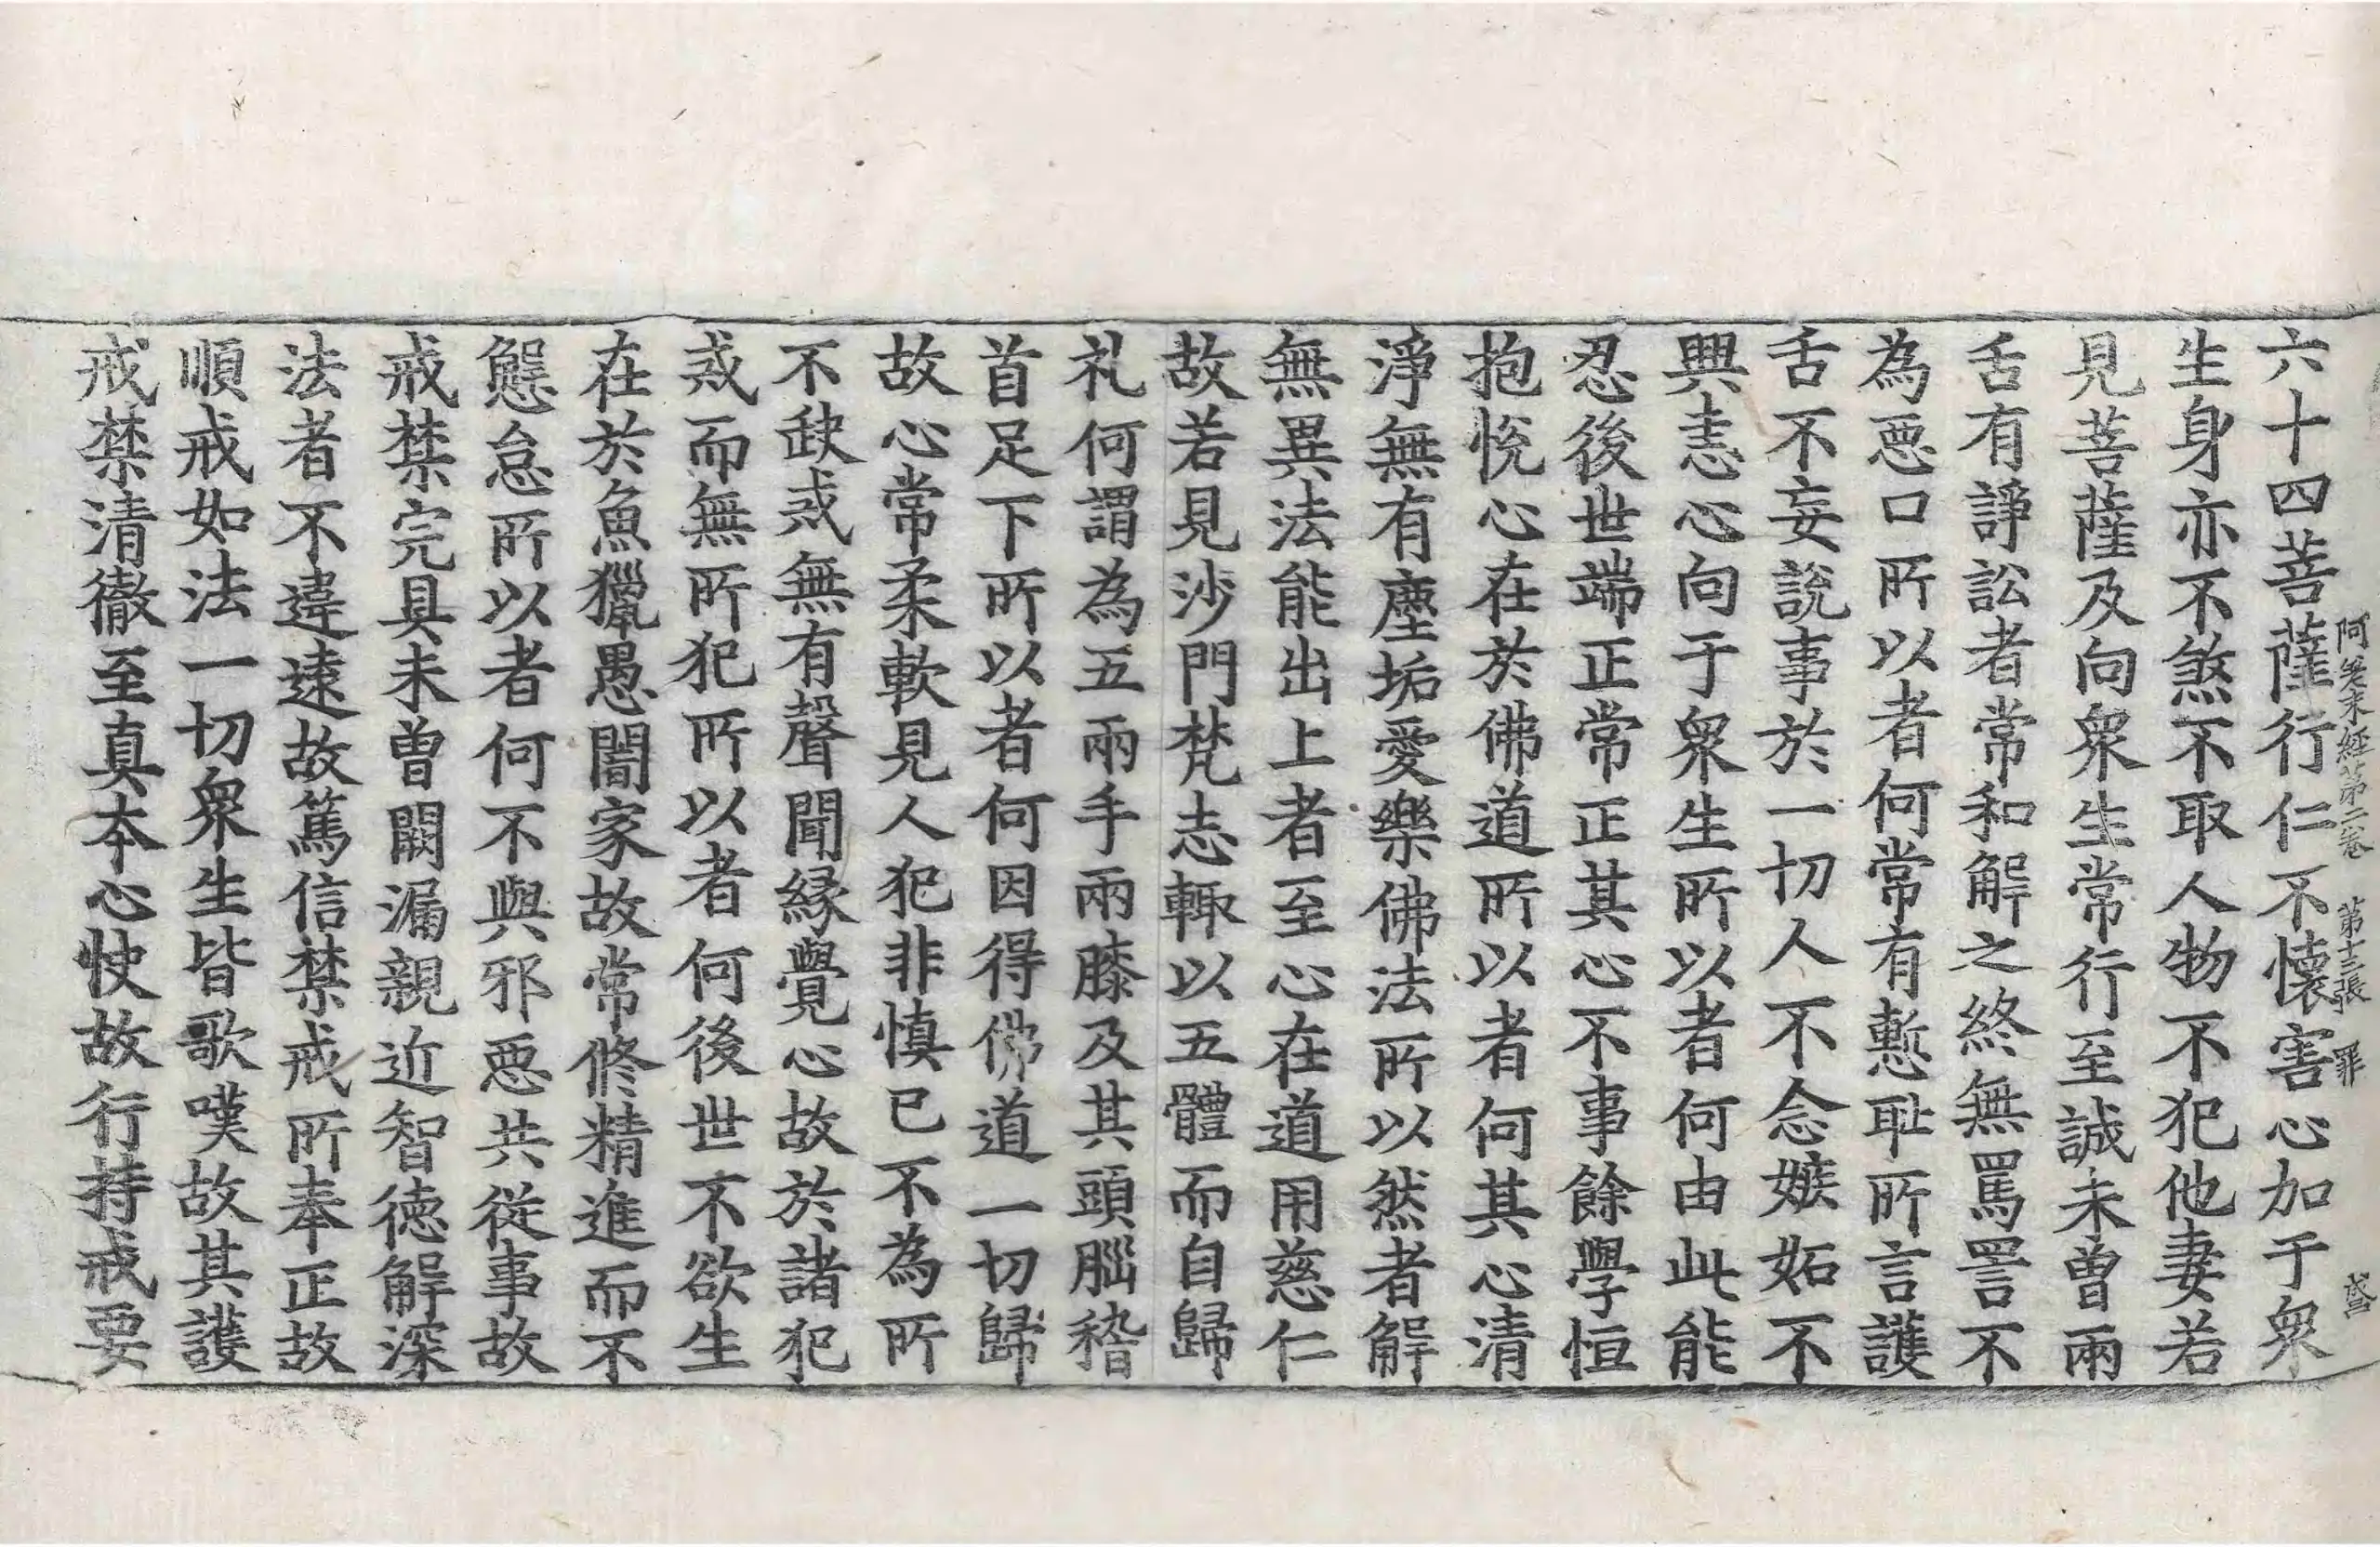 阿差末経第二卷　第十三張　罪
六十四菩薩行仁不懷害心加于衆
生身亦不煞不取人物不犯他妻若
見菩薩及向衆生常行至誠未曽兩
舌有諍訟者常和解之終無罵詈不
為惡口所以者何常有慙耻所言護
舌不妄說事於一切人不念嫉妬不
興恚心向于衆生所以者何由此能
忍後世端正常正其心不事餘學恒
抱悅心在於佛道所以者何其心清
淨無有塵垢愛樂佛法所以然者解
無異法能出上者至心在道用慈仁
故若見沙門梵志輙以五體而自歸
礼何謂為五兩手兩膝及其頭腦稽
首足下所以者何因得佛道一切歸
故心常柔軟見人犯非慎已不為所
不𡙇戒無有聲聞緣覺心故於諸犯
戒而無所犯所以者何後世不欲生
在於魚獵愚闇家故常修精進而不
懈怠所以者何不與邪惡共從事故
戒禁完具未曽闕漏親近智德解深
法者不違遠故篤信禁戒所奉正故
順戒如法一切衆生皆歌嘆故其護
戒禁清徹至真本心快故行持戒要